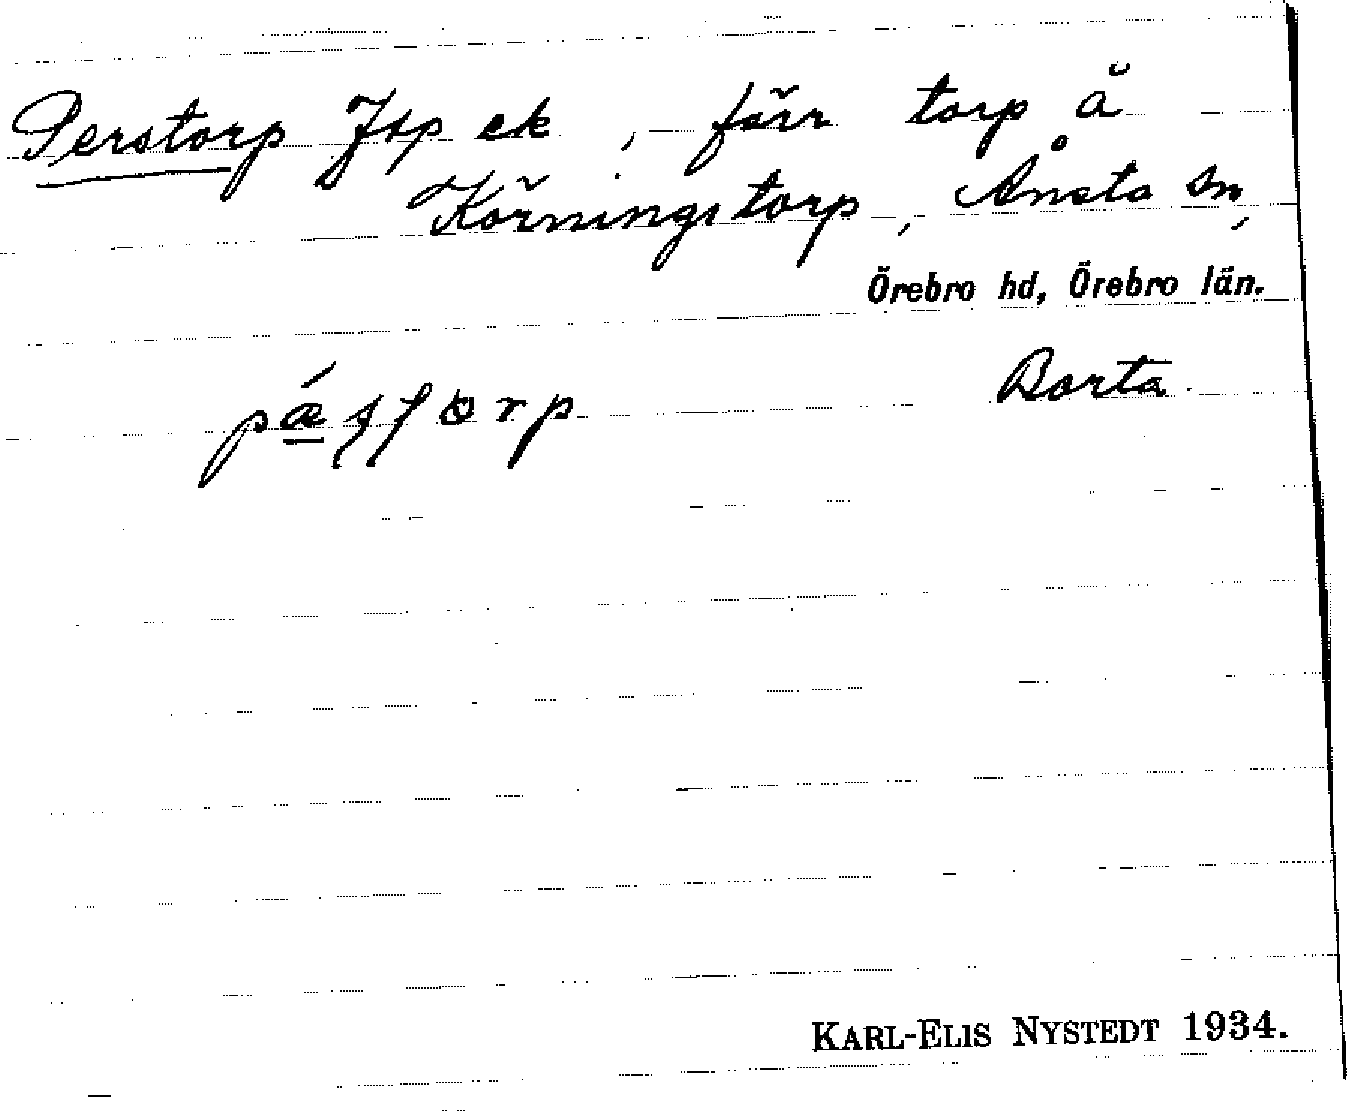 Perstorp Jsp ek, förr torp å
Körningstorp, Ånsta sn,
Örebro hd, Örebro län.
Borta.
KARL-ELIS NYSTEDT 1934.